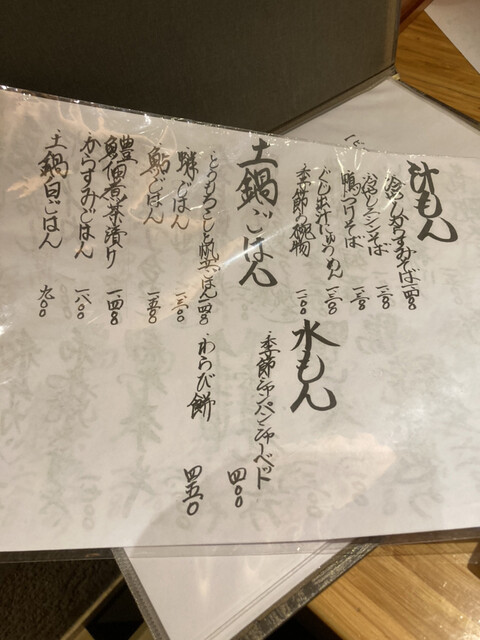 汁もん
冷やしからすみそば 一四〇〇
冷やしレモンそば 一二〇〇
鴨つけそば 一三〇〇
ぐじ出汁にゅうめん 一三〇〇
季節の椀物 一二〇〇
土鍋ごはん
とうもろこし帆立ごはん 一四〇〇
蛸ごはん 一三〇〇
鮎ごはん 一五〇〇
鱧佃煮茶漬け 一四〇〇
からすみごはん 一八〇〇
土鍋白ごはん 九〇〇
水もん
季節シャンパンシャーベット 四〇〇
わらび餅 四五〇